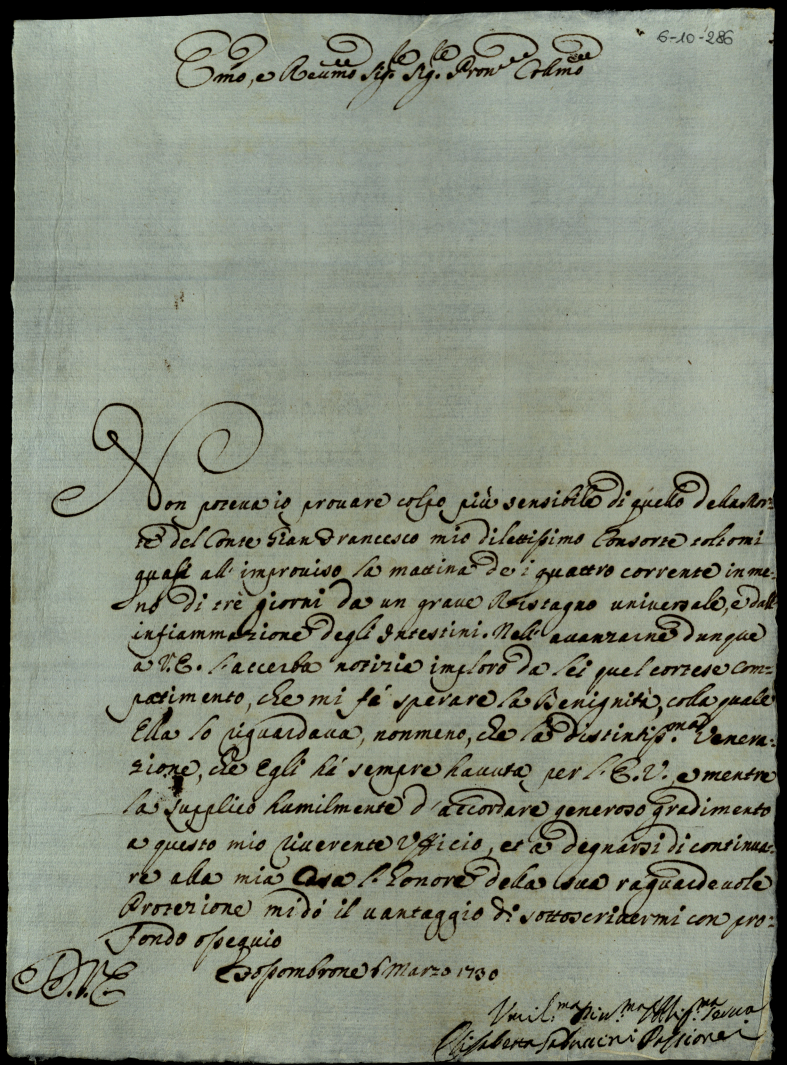 6-10-286
Emo, e Reumo Sig.re Sig.re Pron Colmo
Non poteua io prouare colpo più sensibile di quello della Mor-
te del Conte Gian Francesco mio dilettissimo Consorte toltomi
quasi all'improuiso la mattina de i quattro corrente in me-
no di trè giorni da un graue Ristagno uniuersale, e dall'
infiammazione degli Intestini. Nell'auanzarne dunque
a V.E. l'accerba notizia imploro da lei quel cortese Com-
patimento, che mi fà sperare la Benignità, colla quale
Ella lo riguardaua, nonmeno, che la distintiss.ma Venera-
zione, che Egli hà sempre hauuta per l'E.V., e mentre
la supplico humilmente d'accordare generoso gradimento
a questo mio riuerente Vfficio, et à degnarsi di continua-
re alla mia Casa l'honore della sua raguardeuole
Protezione mi dò il uantaggio di sottoscriuermi con pro-
fondo ossequio
D.V.E
Fossombrone 6 Marzo 1730
Umil.ma Diu.ma Obblig.ma Serua
Elisabetta Passionei